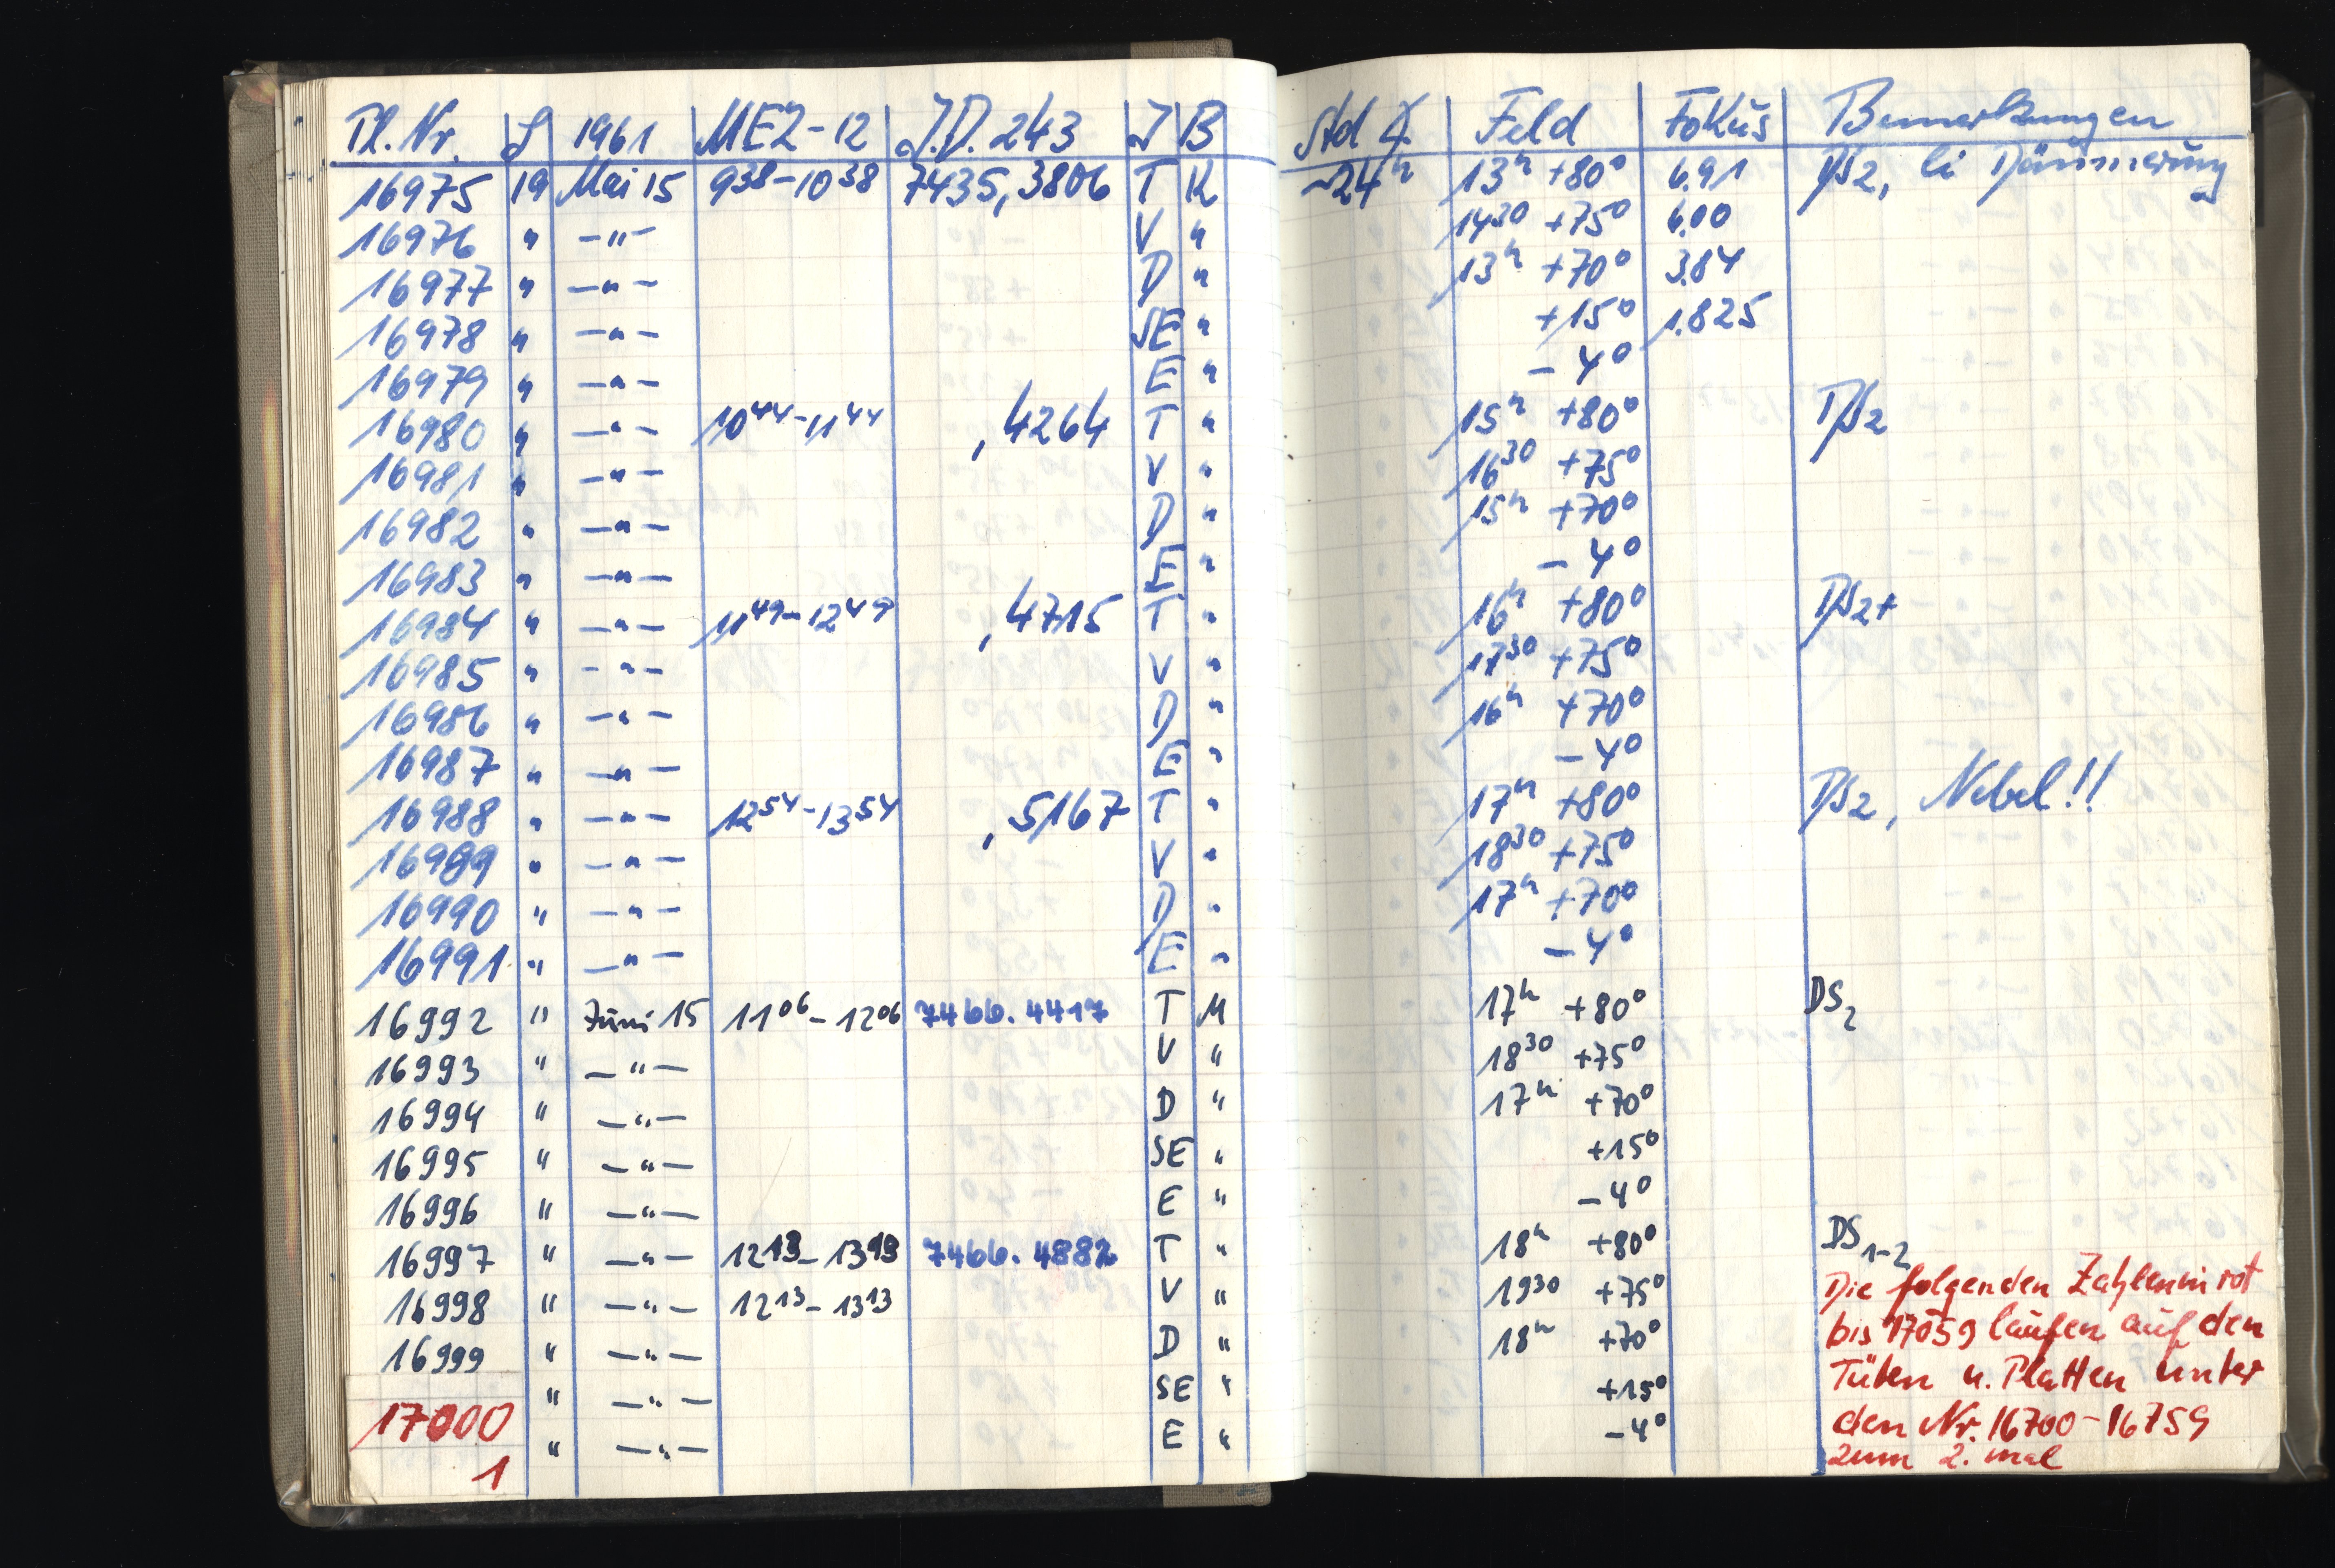 Pl. Nr. S 1961 MEZ-12 J.D. 243 J B Std ∡ Feld Fokus Bemerkungen
16975 19 Mai 15 9 38 - 10 38 7435,3806 T K ~24h 13h +80° 6.91 DS2, li Dämmerung
16976 " -"- V " 14 30 +75° 6.00
16977 " -"- D " 13h +70° 3.84
16978 " -"- SE " +15° 1.825
16979 " -"- E " -4°
16980 " -"- 10 44 - 11 44 ,4264 T " 15h +80° DS2
16981 " -"- V " 16 30 +75°
16982 " -"- D " 15h +70°
16983 " -"- E " -4°
16984 " -"- 11 49 - 12 49 ,4715 T " 16h +80° DS2+
16985 " -"- V " 17 30 +75°
16986 " -"- D " 16h +70°
16987 " -"- E " -4°
16988 " -"- 12 54 - 13 54 ,5167 T " 17h +80° DS2, Nebel!!
16989 " -"- V " 18 30 +75°
16990 " -"- D " 17h +70°
16991 " -"- E " -4°
16992 " Juni 15 11 06 - 12 06 7466.4417 T M 17h +80° DS2
16993 " -"- V " 18 30 +75°
16994 " -"- D " 17h +70°
16995 " -"- SE " +15°
16996 " -"- E " -4°
16997 " -"- 12 13 - 13 13 7466.4882 T " 18h +80° DS1-2
16998 " -"- 12 13 - 13 13 V " 19 30 +75° Die folgenden Zahlen in rot
16999 " -"- D " 18h +70° bis 17059 laufen auf den
17000 " -"- SE " +15° Tüten u. Platten unter
1 " -"- E " -4° den Nr. 16700-16759
zum 2. mal